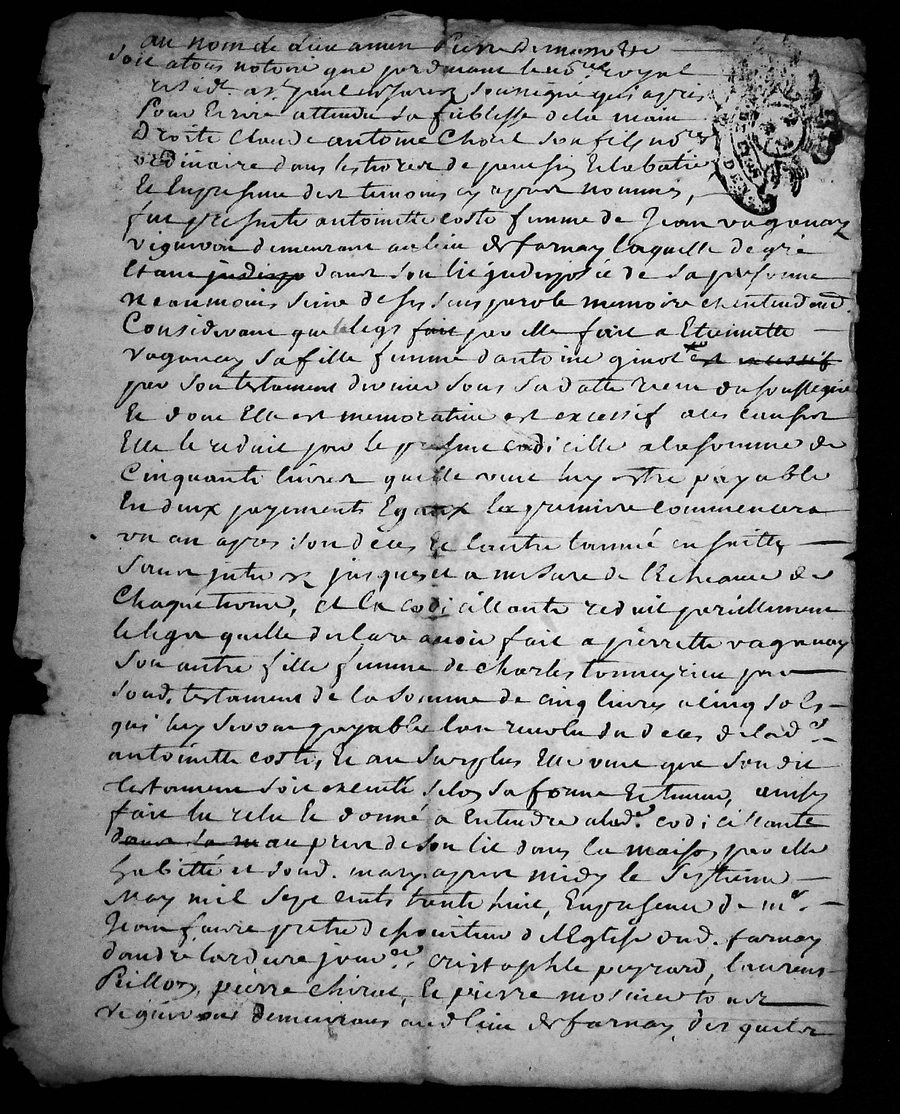 au nom de dieu amen
Soit atous notoire que pardevant le no.re Royal
resid.t a S.t paul en Jarez soussigné qui apres
pour Ecrire attendu sa foiblesse de la main
droite Claude antoine Chorel son fils no.re
ordinaire dans les terres de
Et En presence des temoins cy apres nommes,
fut presente antoinette coste femme de Jean vaganay
vigneron demeurant au lieu de farnay laquelle de gré
Etant dans son lit indisposée de sa personne
neanmoins saine de ses sens parole memoire et entendem.t
Considerant que le legs fait par elle fait a Etiennette
vaganay sa fille femme d'antoine guiot est excessif
par son testament dernier sous sa datte receu du soussigné
Et dont Elle est memorative est excessif a ces causes
Elle le reduit par le present codicille a la somme de
Cinquante livres quelle veut luy estre payable
En deux payements Egaux les premiere commencera
un an apres son deces Et l'autre l'année en suitte
sans interest jusques et a mesure de l'Echeance de
Chaque terme, et la codicillante reduit pareillement
le legs quelle declare avoir fait a pierrette vaganay
son autre fille femme de charles par
sond. testament de la somme de cinq livres a cinq sols
qui luy seront payables l'an revolu du deces de lad.e
antoinette coste, Et au surplus Elle veut que son dit
testament soit executé selon sa forme Et teneur, ainsy
fait lu relu Et donné a Entendre a lad.e codicillante
dans sa m au pres de son lit dans la maison par elle
habittée et sond. mary apres midy le septieme
May mil sept cents trente huit, En presence de m.e
Jean faure pretre desserviteur de l'Eglise dud. farnay
andre lardiere jour.er cristophle peyrard, laurens
Rillon, pierre Chirat, Et pierre tous
vignerons demeurants aud. lieu de farnay, des quels